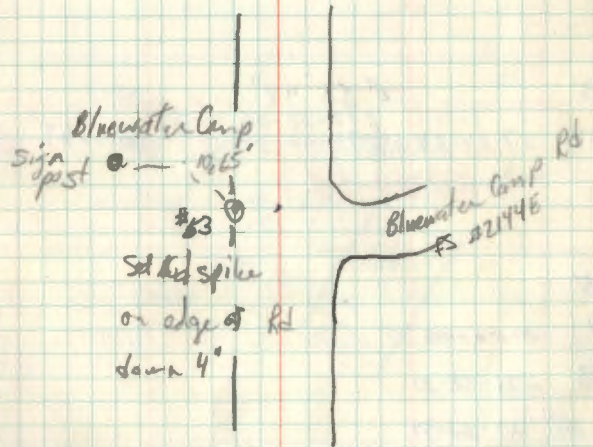 Bluewater Camp
sign post
10.65'
#53
Set spike
on edge of Rd
down 4"
Bluewater Camp Rd
FS #2144E